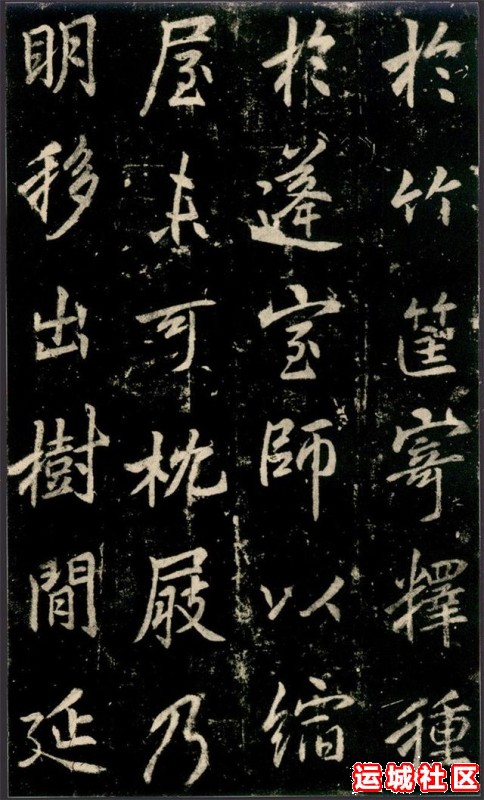 於竹筐寄釋種
於蓬室師以縮
屋未可枕屐乃
明移出樹間延
运城社区